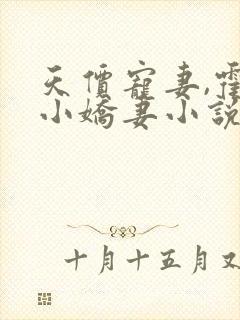 天價寵妻,霍
小嬌妻小說
十月十五月又